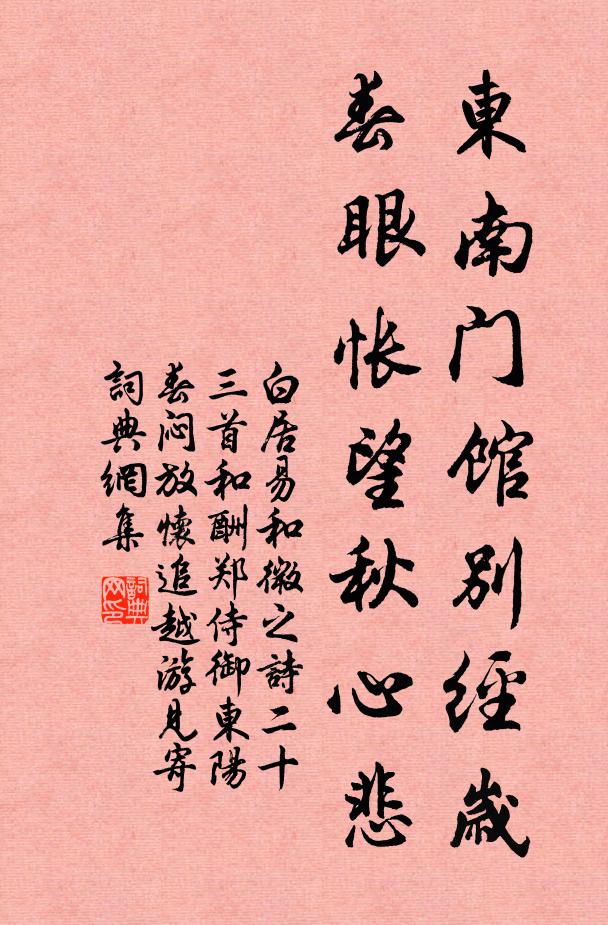 東南门馆別經歲
春眼怅望秋心悲
白居易和微之詩二十
三首和酬郑侍御東陽
春闷放懷追越游見寄
詞典網集
詞典网印